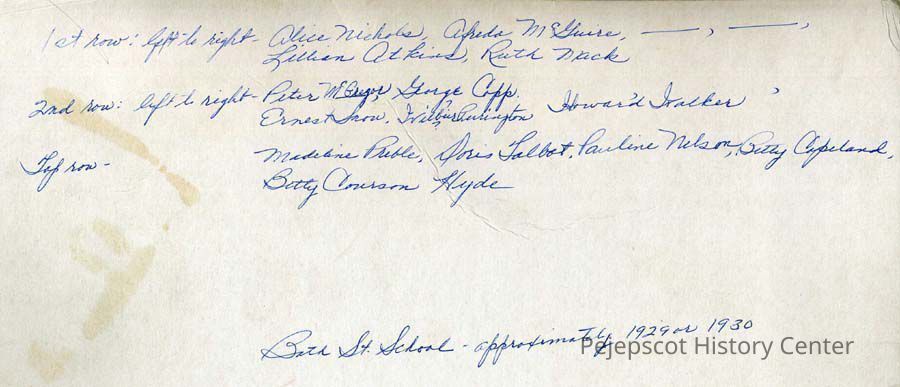 1st row: left to right - Alice Nichols, Afreda McGuire, —, —,
Lillian Atkins, Ruth Mack
2nd row: left to right - Peter McGregor, George Copp,
Ernest Snow, Wilbur Purington Howard Walker
Top row - Madeline Preble, Doris Talbot, Pauline Nelson, Betty Copeland,
Betty Courson Hyde
Bath St. School - approximately 1929 or 1930
Pejepscot History Center